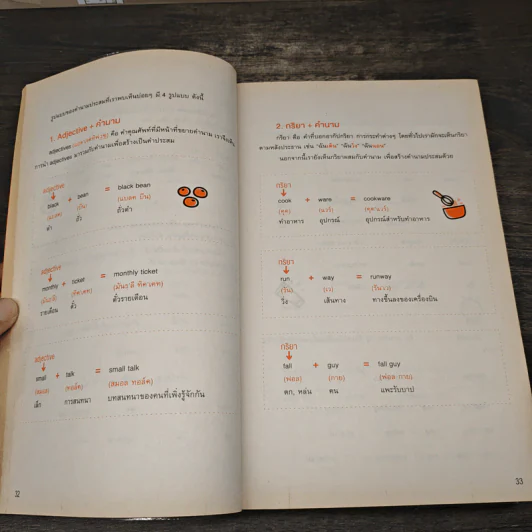 รูปแบบของคำนามประสมที่เราพบเห็นบ่อยๆ มี 4 รูปแบบ ดังนี้
1. Adjective + คำนาม
คือ คำคุณศัพท์ที่มีหน้าที่ขยายคำนาม
การนำ adjectives มารวมกับคำนามเพื่อสร้างเป็นคำประสม
adjective
black + bean = black bean
(แบลค) (บีน) (แบลค บีน)
ดำ ถั่ว ถั่วดำ
adjective
monthly + ticket = monthly ticket
(มันธลี) (ทิคเคท) (มันธลี ทิคเคท)
รายเดือน ตั๋ว ตั๋วรายเดือน
adjective
small + talk = small talk
(สมอล) (ทอล์ค) (สมอล ทอล์ค)
เล็ก การสนทนา บทสนทนาของคนที่เพิ่งรู้จักกัน
32
2. กริยา + คำนาม
กริยา คือ คำที่บอกอากัปกริยา การกระทำต่างๆ โดยทั่วไปเรามักจะเห็นกริยา
ตามหลังประธาน เช่น
นอกจากนี้เรายังเห็นกริยาผสมกับคำนาม เพื่อสร้างคำนามประสมด้วย
กริยา
cook + ware = cookware
(คุค) (แวร์) (คุคแวร์)
ทำอาหาร อุปกรณ์ อุปกรณ์สำหรับทำอาหาร
กริยา
run + way = runway
(รัน) (เว) (รันเว)
วิ่ง เส้นทาง ทางขึ้นลงของเครื่องบิน
กริยา
fall + guy = fall guy
(ฟอล) (กาย) (ฟอล กาย)
ตก, หล่น คน แพะรับบาป
33